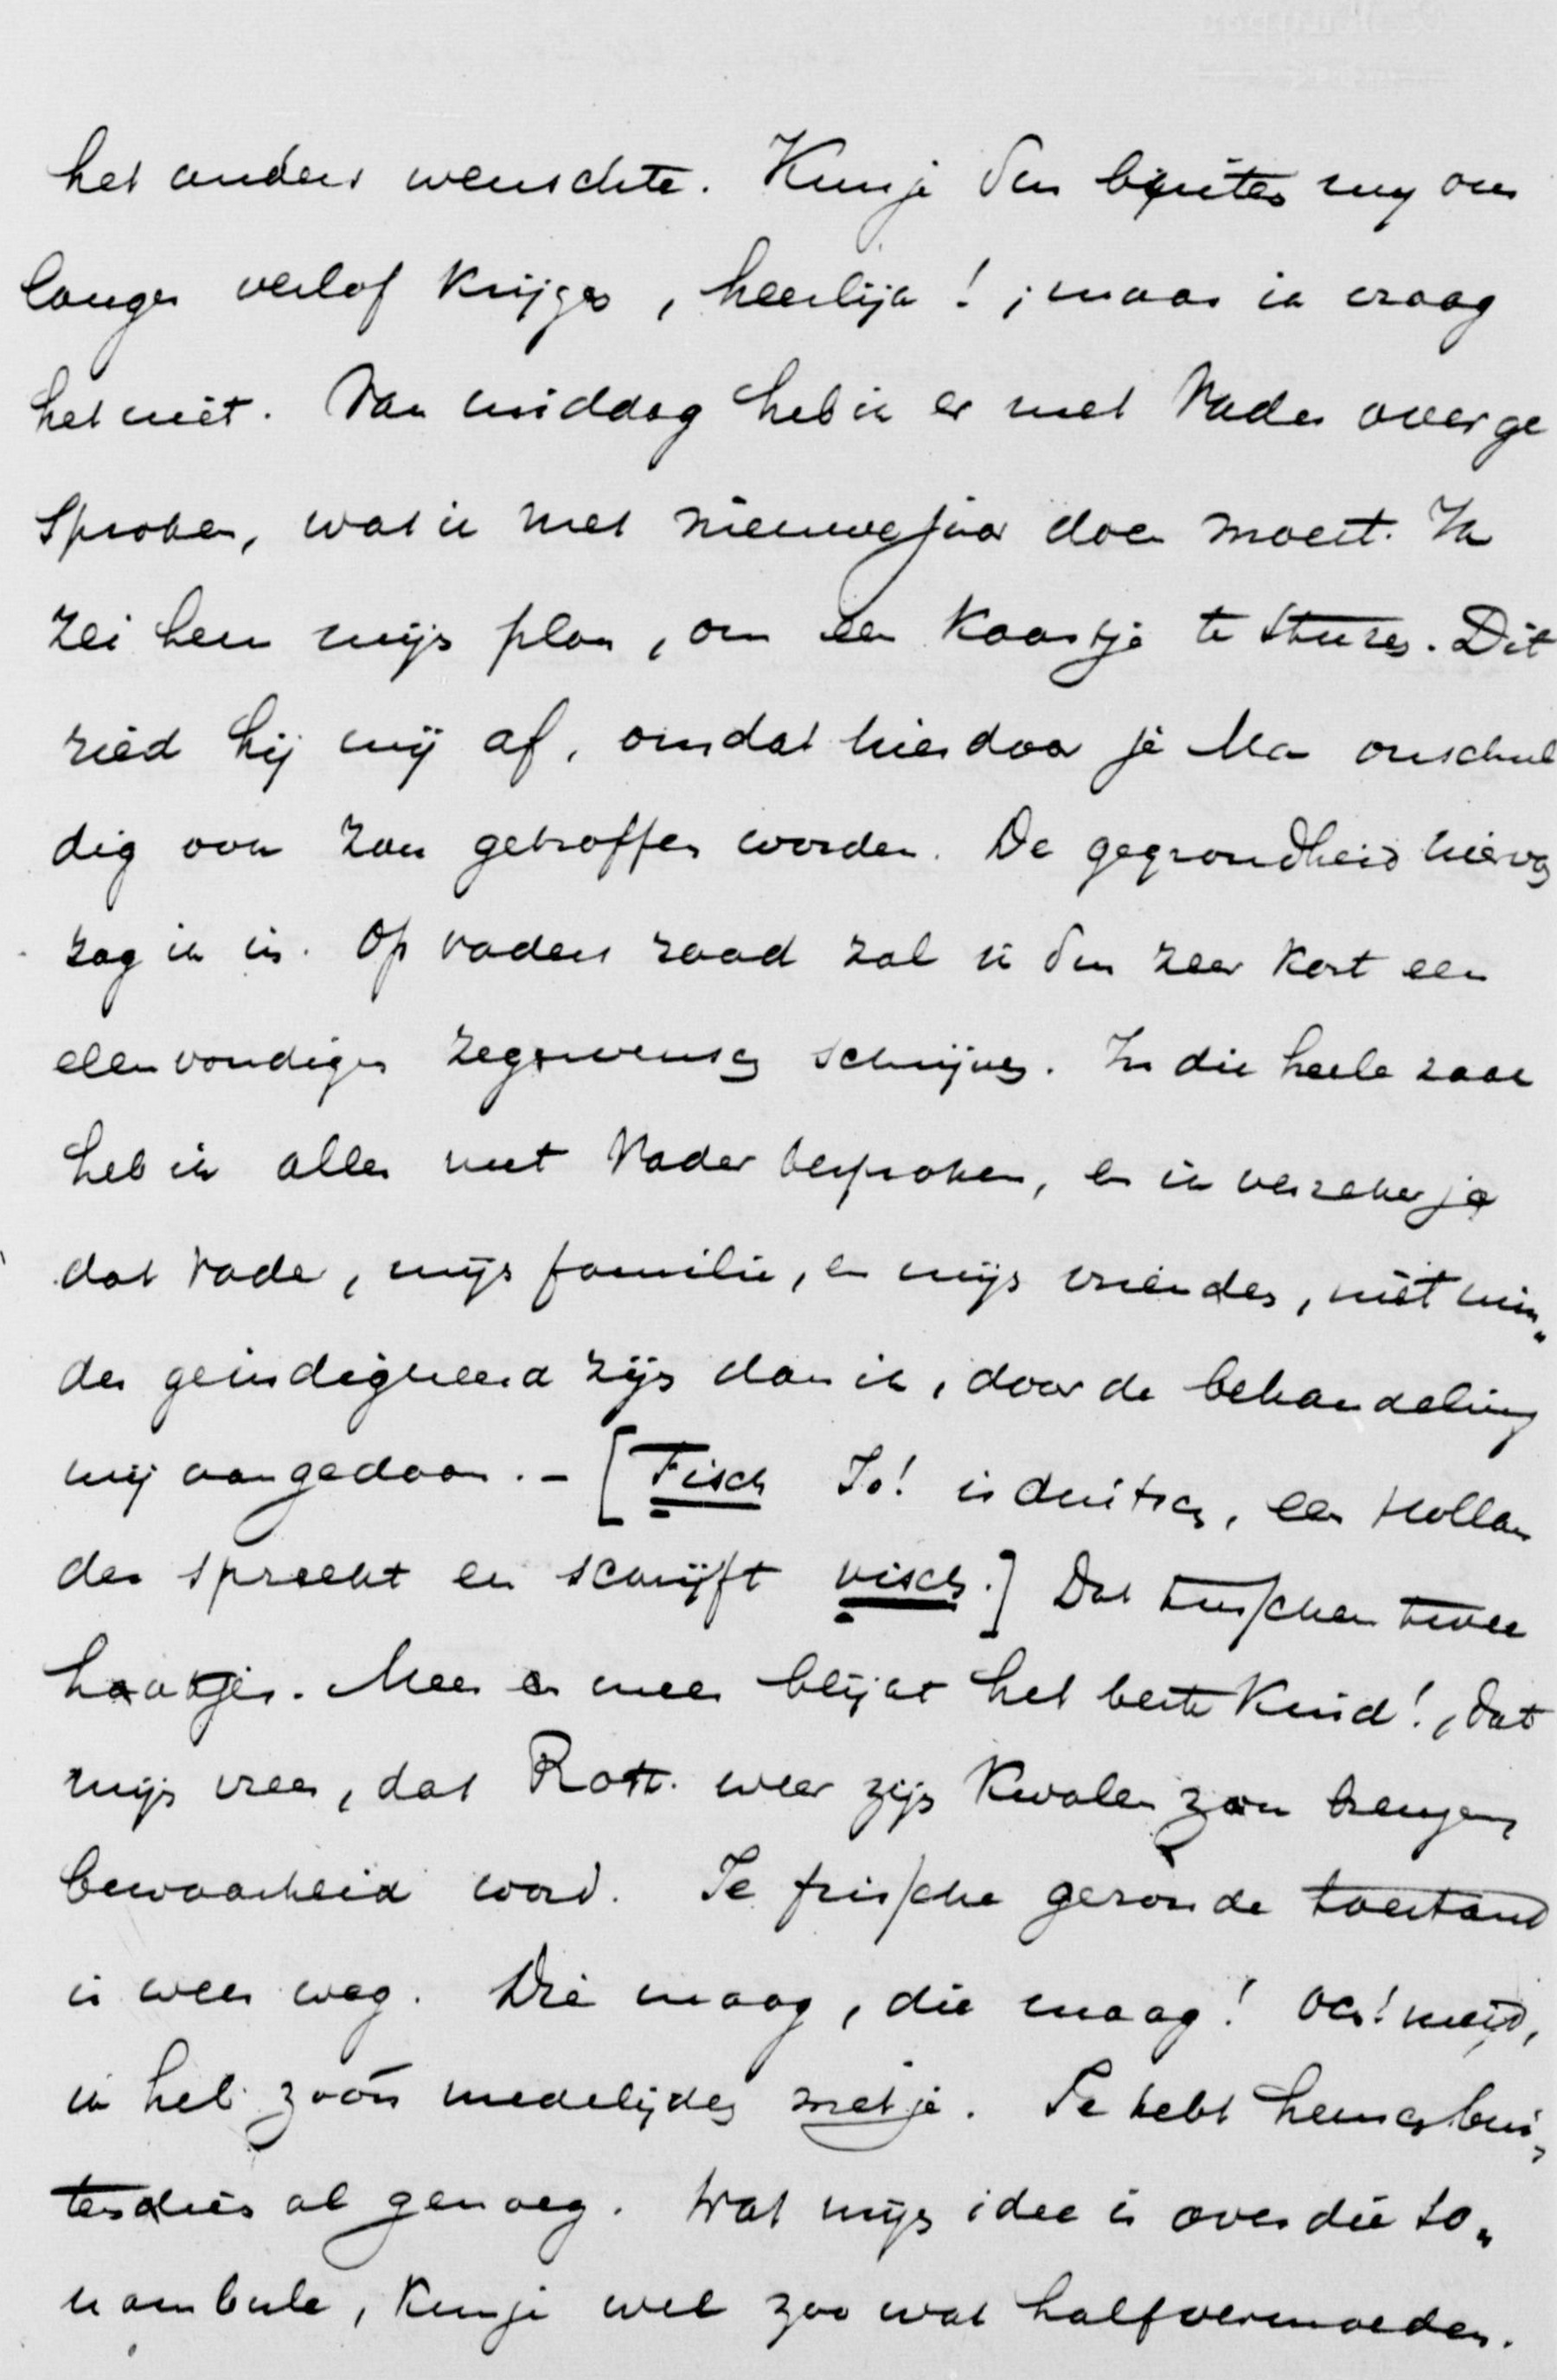 het anders wenschte. Kun je dan buiten mij om
langer verlof krijgen, heerlijk!; maar ik vraag
het niet. Van middag heb ik er met Vader over ge
sproken, wat ik met nieuwejaar doen moest. Ik
zei hem mijn plan, om een kaartje te sturen. Dit
ried hij mij af, omdat hierdoor je Ma onschul
dig ook zou getroffen worden. De gegrondheid hiervan
zag ik in. Op vaders raad zal ik dan zeer kort een
eenvoudigen zegenwensch schrijven. In die heele zaak
heb ik alles met Vader besproken, en ik verzeker je
dat Vader, mijn familie, en mijn vrienden, niet min„
der geindigneerd zijn dan ik, door de behandeling
mij aangedaan. – [Fisch Jo! is duitsch, een Hollan
der spreekt en schrijft visch.] Dat tusschen twee
haakjes. Meer en meer blijkt het beste kind!, dat
mijn vrees, dat Rott. weer zijn kwalen zou brengen,
bewaarheid word. Je frissche gezonde toestand
is weer weg. Die maag, die maag! Och! meid,
ik heb zoo'n medelijden met je. Je hebt hemasch bui„
tendien al genoeg. Wat mijn idee is over die so„
nambule, kun je wel zoo wat half vermoeden.